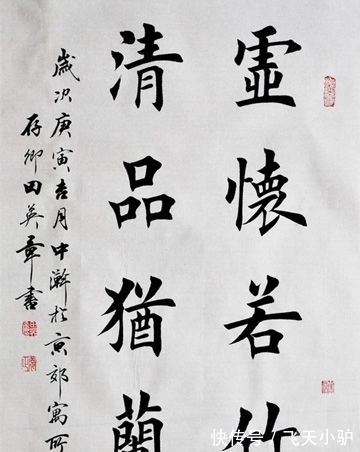 虛懷若竹
清品猶蘭
歲次庚寅吉月中澣於京郊寓所
存卿田英章書
快传号／飞天小驴